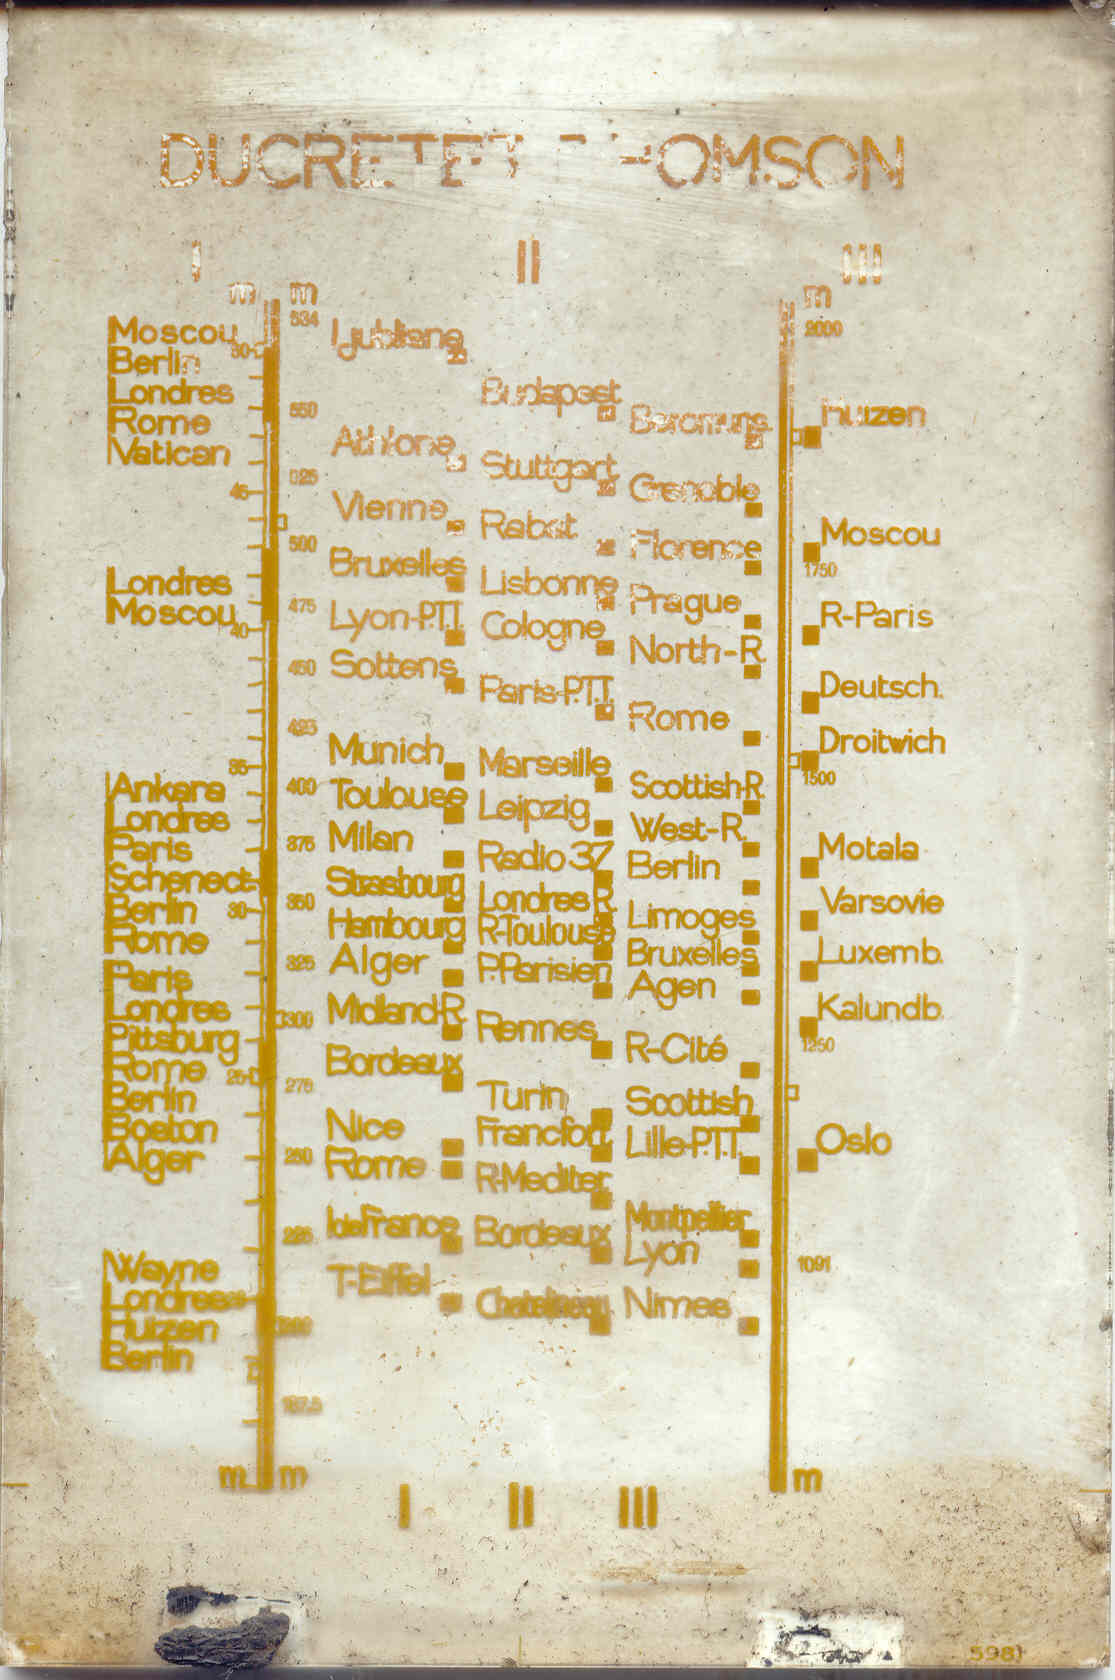 DUCRETET THOMSON
I II III
m m m
Moscou
Berlin
Londres
Rome
Vatican
Londres
Moscou
Ankara
Londres
Paris
Schenect
Berlin
Rome
Paris
Londres
Pittsburg
Rome
Berlin
Boston
Alger
Wayne
Londres
Huizen
Berlin
50
45
40
35
30
25
m
534
550
525
500
475
450
425
400
375
350
325
300
275
250
225
200
187.5
m
Ljubliana
Athlone
Vienne
Bruxelles
Lyon-P.T.T.
Sottens
Munich
Toulouse
Milan
Strasbourg
Hambourg
Alger
Midland-R.
Bordeaux
Nice
Rome
I.defrance
T-Eiffel
Budapest
Stuttgart
Rabat
Lisbonne
Cologne
Paris-P.T.T.
Marseille
Leipzig
Radio 37
Londres R.
R-Toulouse
P.Parisien
Rennes
Turin
Francfort
R-Mediter
Bordeaux
Beromuns.
Grenoble
Florence
Prague
North-R.
Rome
Scottish-R.
West-R.
Berlin
Limoges
Bruxelles
Agen
R-Cité
Scottish
Lille-P.T.T.
Montpellier
Lyon
Nimes
2000
1750
1500
1250
1091
m
Huizen
Moscou
R-Paris
Deutsch.
Droitwich
Motala
Varsovie
Luxemb.
Kalundb.
Oslo
I II III